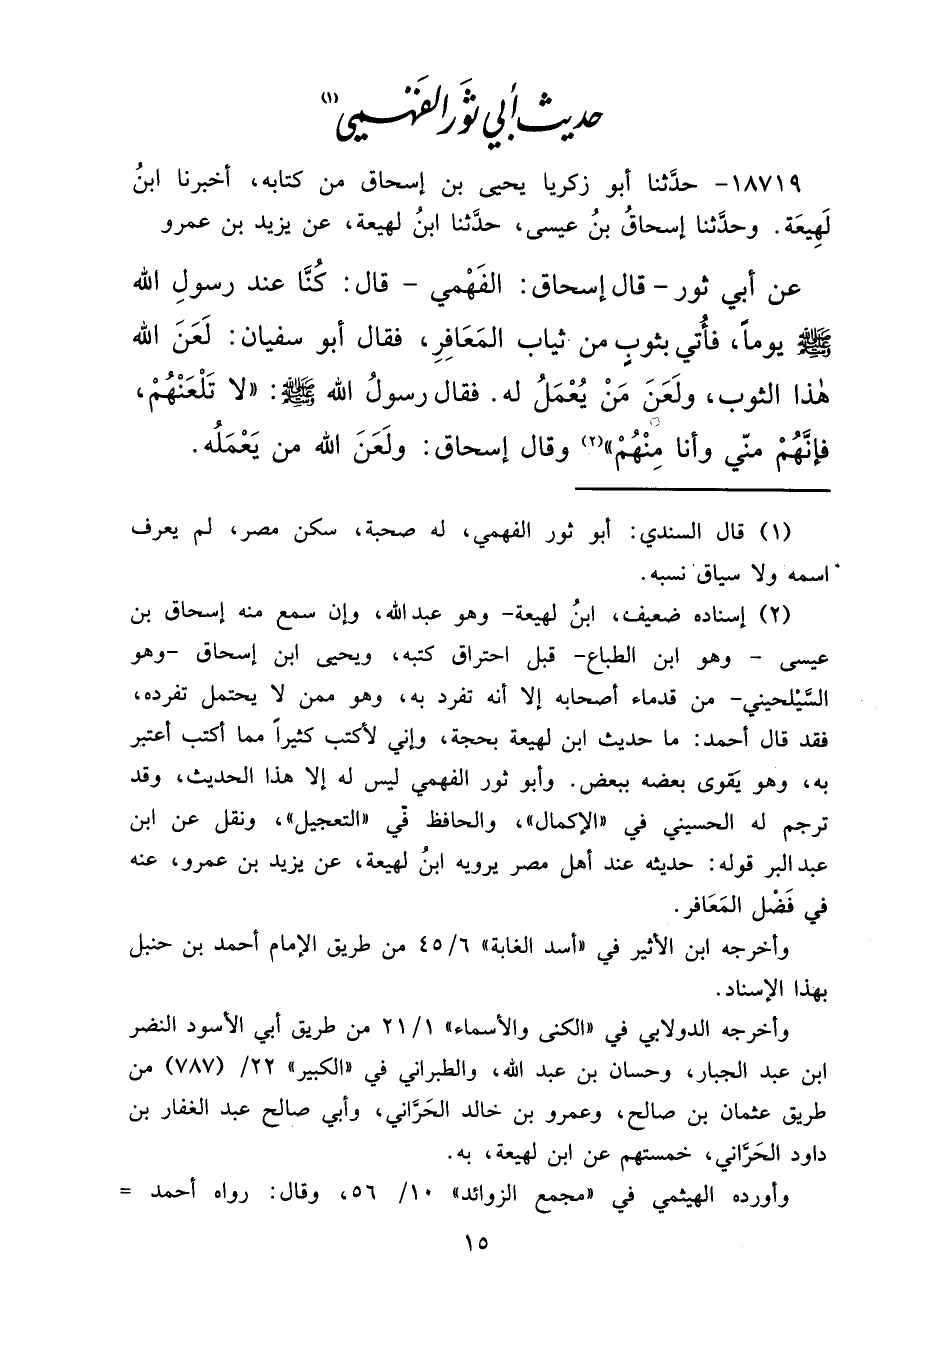 حديث أبي ثور الفهمي(١)
١٨٧١٩- حدَّثنا أبو زكريا يحيى بن إسحاق من كتابه، أخبرنا ابنُ
لَهِيعَة. وحدَّثنا إسحاقُ بنُ عيسى، حدَّثنا ابنُ لهيعة، عن يزيد بن عمرو
عن أبي ثور - قال إسحاق: الفَهْمي - قال: كُنَّا عند رسولِ الله
ﷺ يوماً، فأُتي بثوبٍ من ثياب المَعَافِرِ، فقال أبو سفيان: لَعَنَ الله
هٰذا الثوب، ولَعَنَ مَنْ يُعْمَلُ له. فقال رسولُ الله ﷺ: «لا تَلْعَنْهُمْ،
فإنَّهُمْ منّي وأنا مِنْهُمْ»(٢) وقال إسحاق: ولَعَنَ الله من يَعْمَلُه.
(١) قال السندي: أبو ثور الفهمي، له صحبة، سكن مصر، لم يعرف
اسمه ولا سياق نسبه.
(٢) إسناده ضعيف، ابنُ لهيعة- وهو عبدالله، وإن سمع منه إسحاق بن
عيسى - وهو ابن الطباع- قبل احتراق كتبه، ويحيى ابن إسحاق -وهو
السَّيْلحيني- من قدماء أصحابه إلا أنه تفرد به، وهو ممن لا يحتمل تفرده،
فقد قال أحمد: ما حديث ابن لهيعة بحجة، وإني لأكتب كثيراً مما أكتب أعتبر
به، وهو يَقوى بعضه ببعض. وأبو ثور الفهمي ليس له إلا هذا الحديث، وقد
ترجم له الحسيني في «الإكمال»، والحافظ في «التعجيل»، ونقل عن ابن
عبدالبر قوله: حديثه عند أهل مصر يرويه ابنُ لهيعة، عن يزيد بن عمرو، عنه
في فَضْل المَعَافر.
وأخرجه ابن الأثير في «أسد الغابة» ٤٥/٦ من طريق الإمام أحمد بن حنبل
بهذا الإسناد.
وأخرجه الدولابي في «الكنى والأسماء» ٢١/١ من طريق أبي الأسود النضر
ابن عبد الجبار، وحسان بن عبد الله، والطبراني في «الكبير» ٢٢/ (٧٨٧) من
طريق عثمان بن صالح، وعمرو بن خالد الحَرَّاني، وأبي صالح عبد الغفار بن
داود الحَرَّاني، خمستهم عن ابن لهيعة، به.
وأورده الهيثمي في «مجمع الزوائد» ١٠/ ٥٦، وقال: رواه أحمد =
١٥